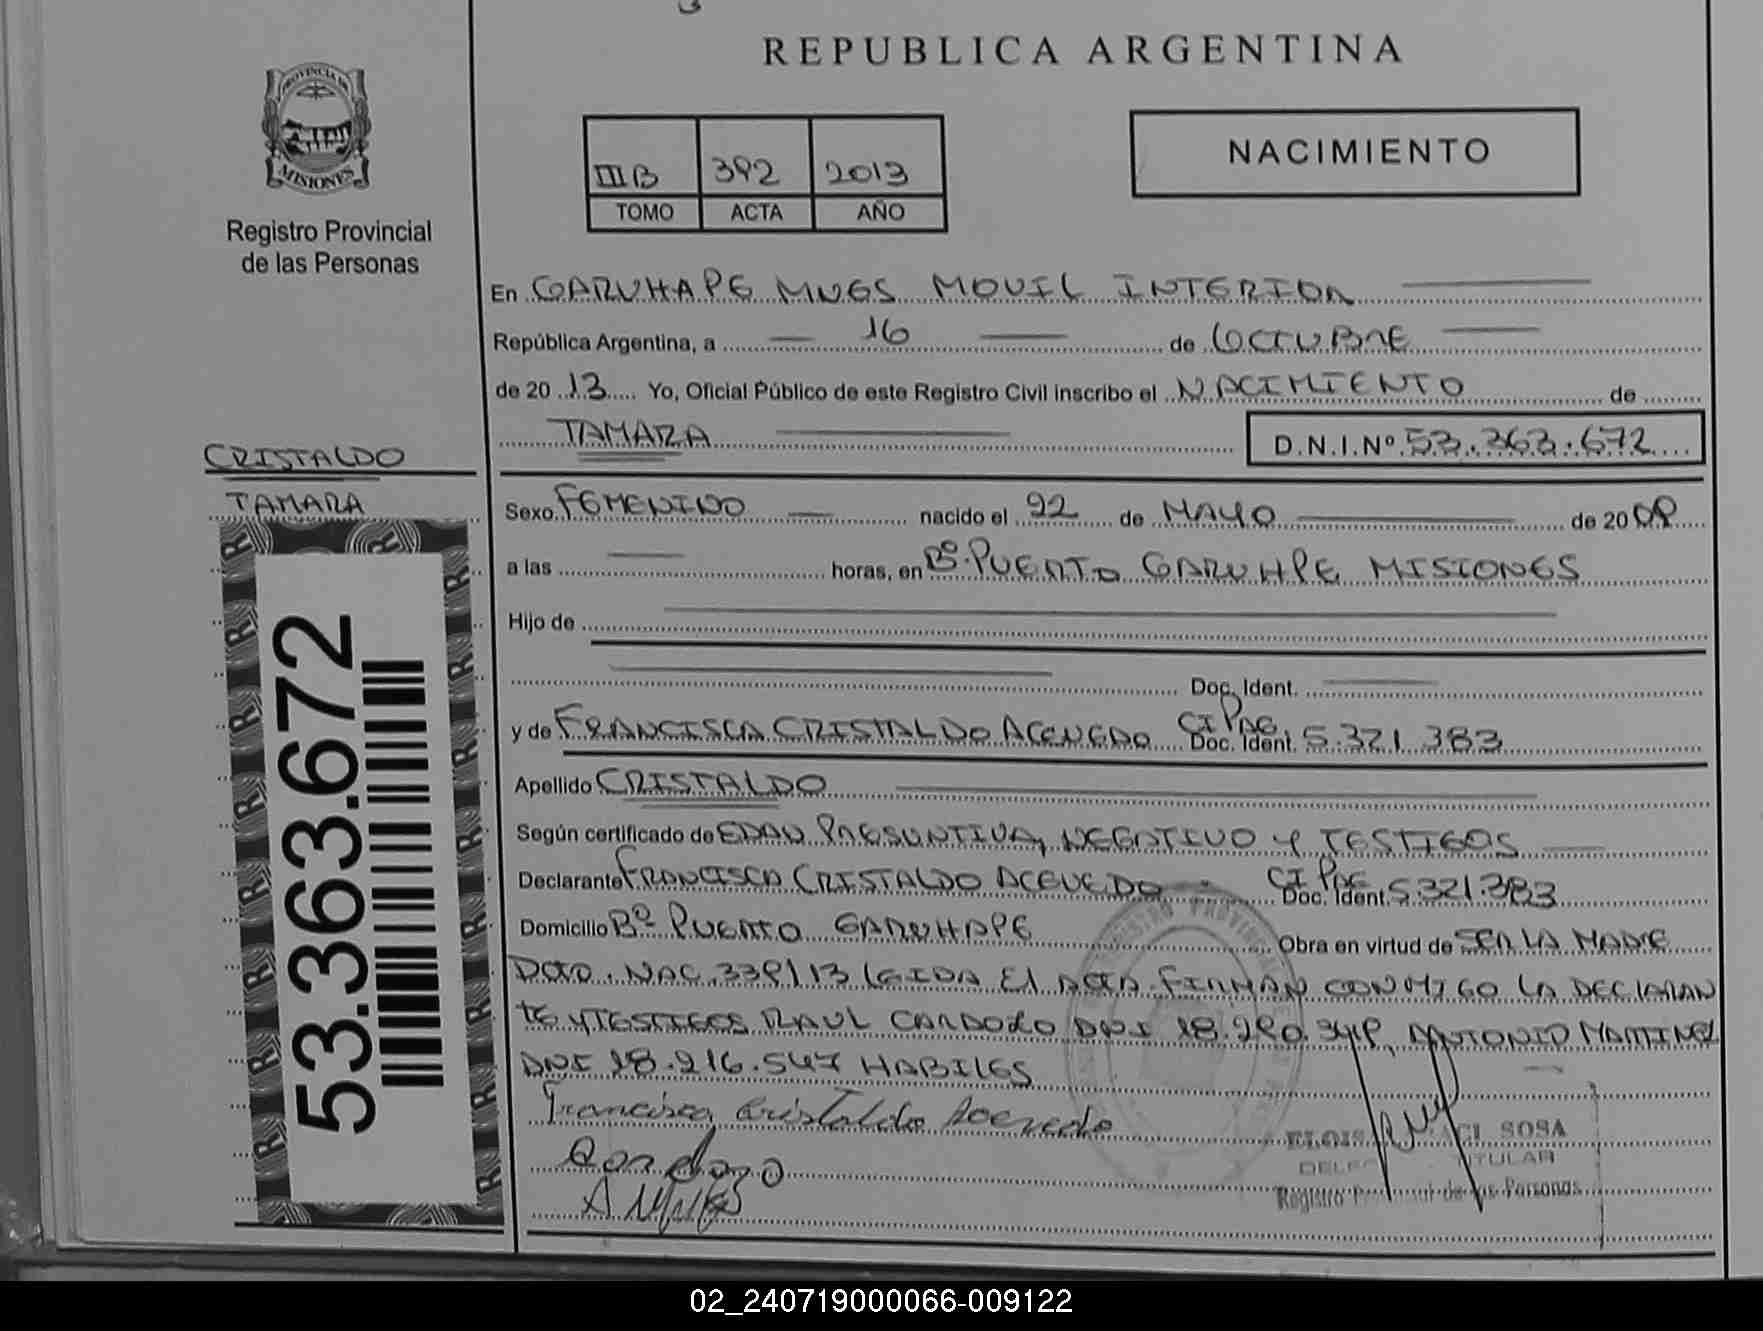 REPUBLICA ARGENTINA
PROVINCIA DE
MISIONES
Registro Provincial
de las Personas
III B 392 2013
TOMO ACTA AÑO
NACIMIENTO
En GARUHAPE MNES MOVIL INTERIOR
República Argentina, a 16 de OCTUBRE
de 2013 Yo, Oficial Público de este Registro Civil inscribo el NACIMIENTO de
TAMARA D.N.I.Nº 53.363.672
CRISTALDO
TAMARA
53.363.672
Sexo FEMENINO nacido el 22 de MAYO de 20
a las horas, en Bº PUERTO GARUHPE MISIONES
Hijo de
Doc. Ident.
y de FRANCISCA CRISTALDO ACEVEDO CI Doc. Ident. 5.321.383
Apellido CRISTALDO
Según certificado de EDAD PRESUNTIVA, NEGATIVO Y TESTIGOS
Declarante FRANCISCA CRISTALDO ACEVEDO CI Doc. Ident. 5321.383
Domicilio Bº PUERTO GARUHAPE Obra en virtud de SER LA MADRE
NAC. LEIDA EL ACTA FIRMAN CONMIGO LA DECLARAN
TE Y TESTIGOS RAUL CARDOZO DNI ANTONIO MARTINEZ
DNI 18.216.547 HABILES
Francisca Cristaldo Acevedo
Cardozo
SOSA
TITULAR
Registro Provincial de las Personas
02_240719000066-009122